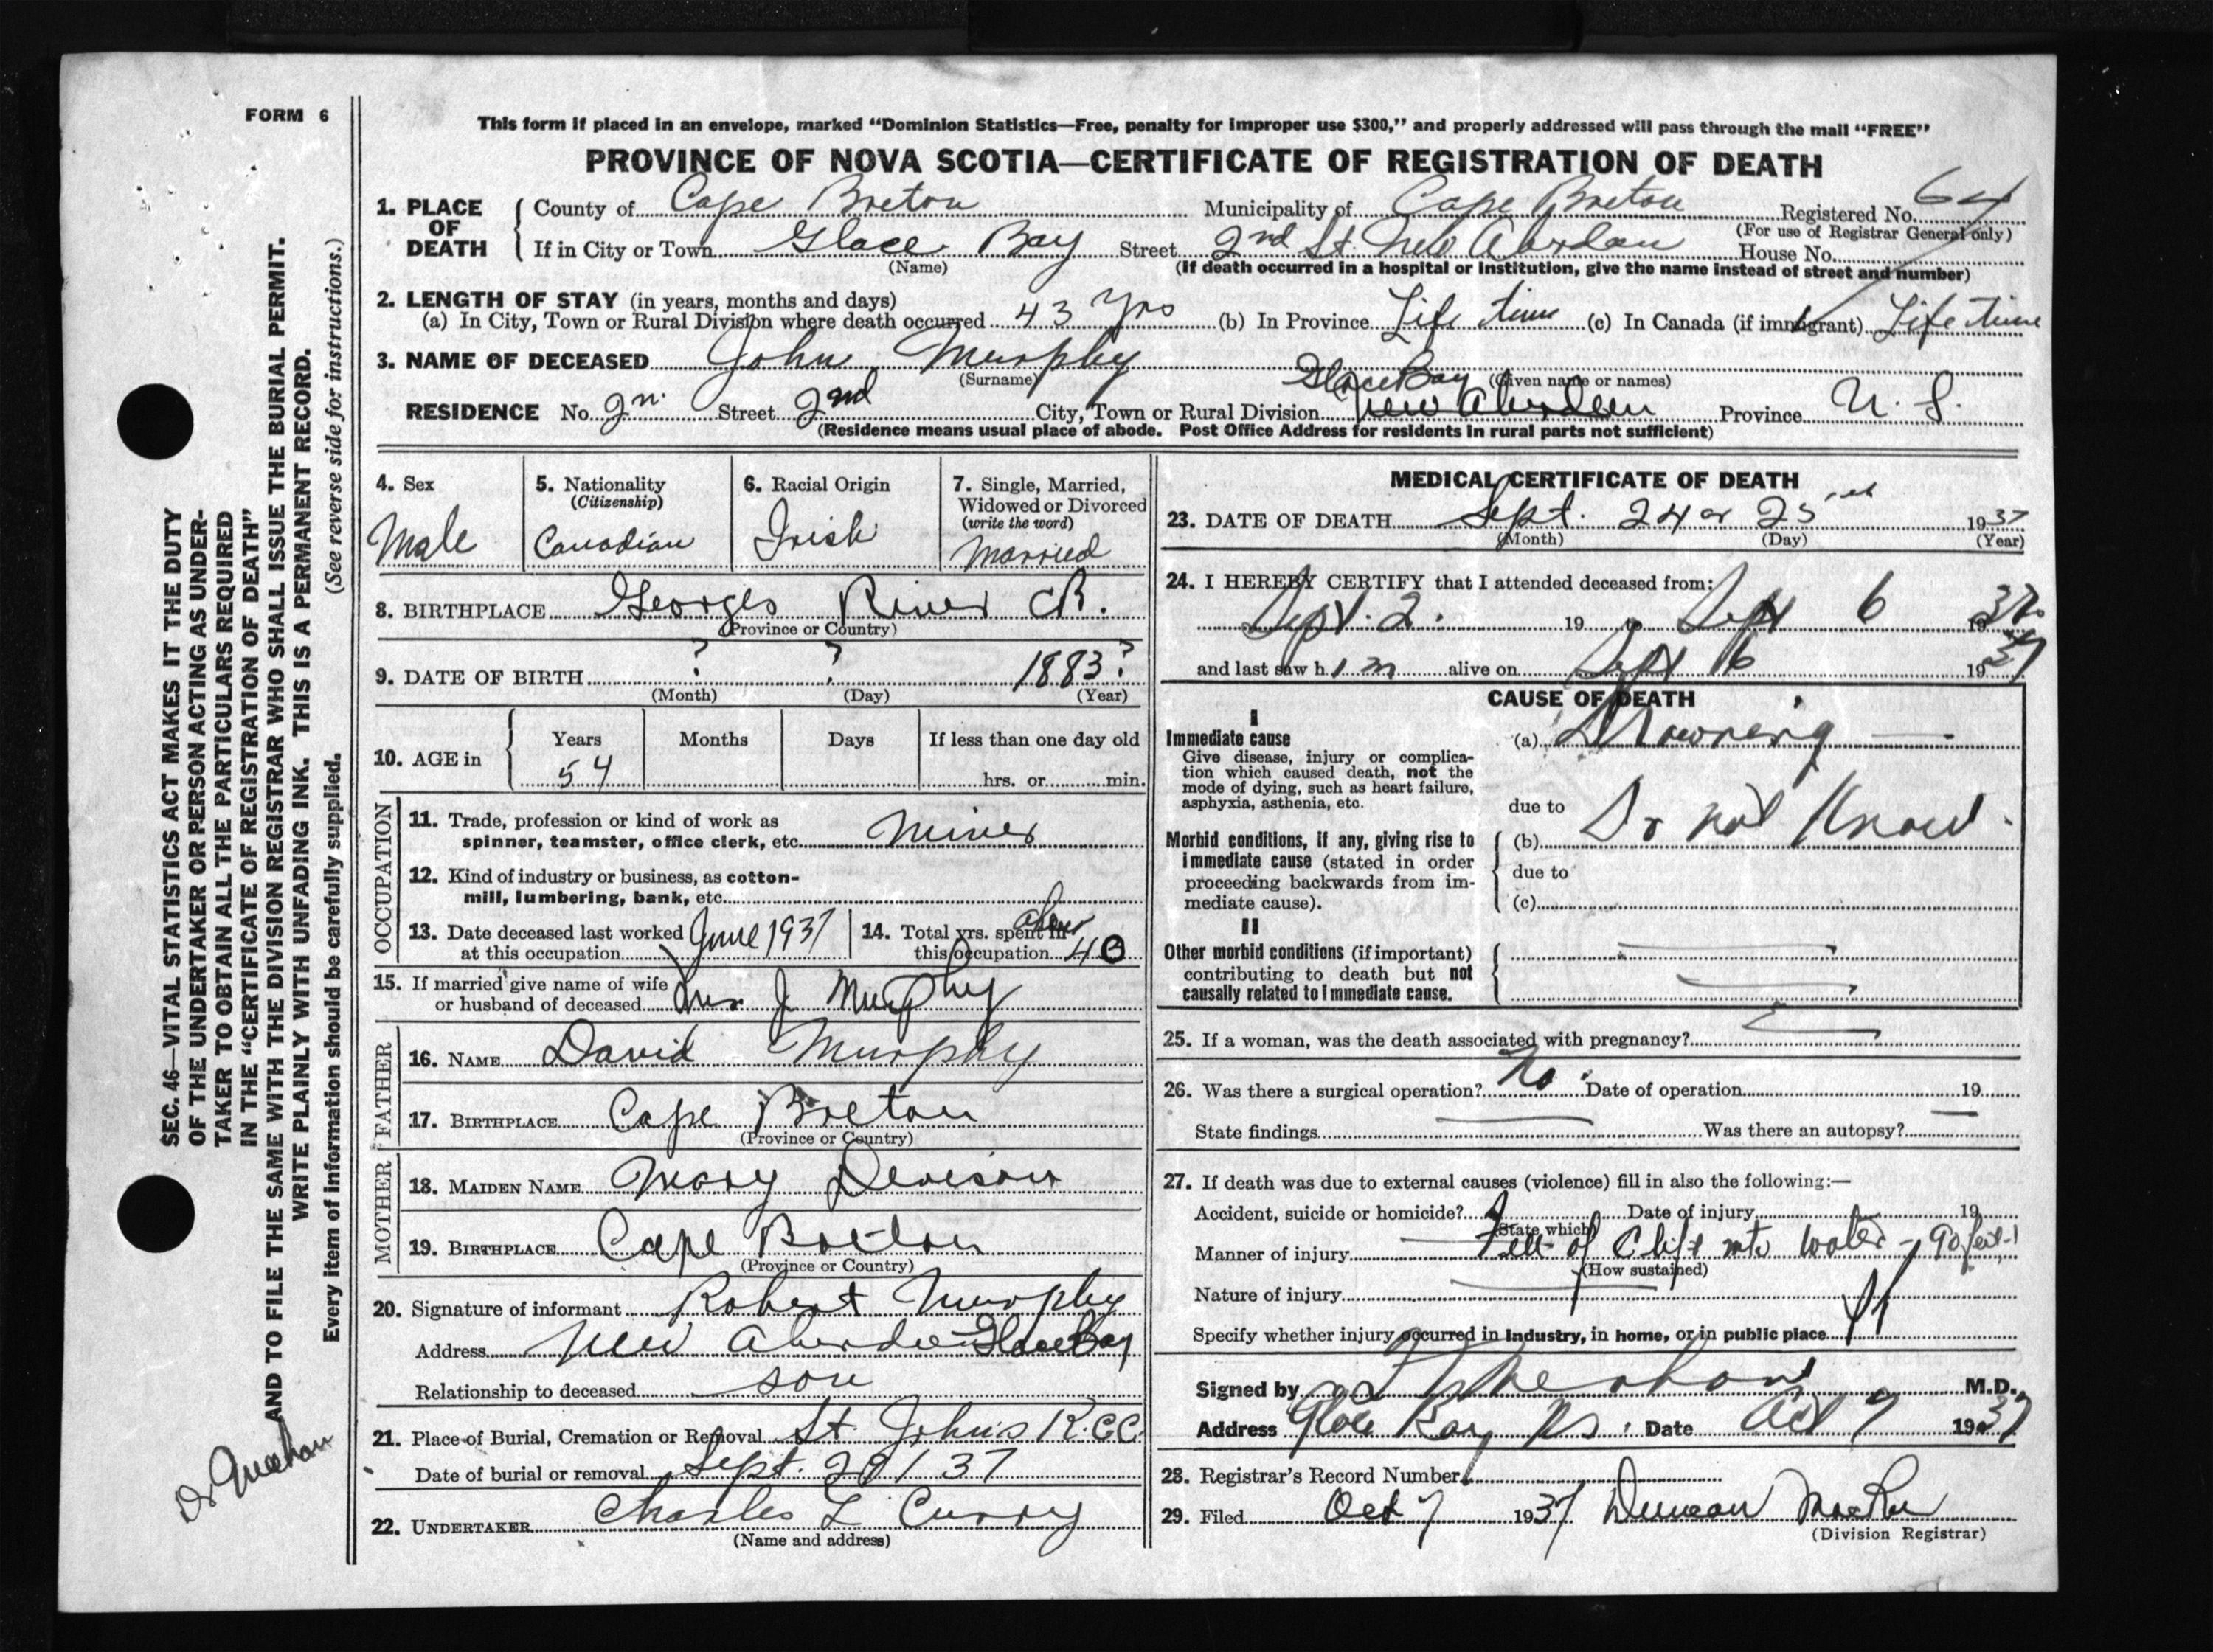 FORM 6
This form if placed in an envelope, marked “Dominion Statistics—Free, penalty for improper use $300,” and properly addressed will pass through the mail “FREE”
PROVINCE OF NOVA SCOTIA—CERTIFICATE OF REGISTRATION OF DEATH
1. PLACE OF DEATH County of Cape Breton Municipality of Cape Breton Registered No. 64
(For use of Registrar General only)
If in City or Town Glace Bay Street 2nd St. New Aberdeen House No.
(Name) (If death occurred in a hospital or institution, give the name instead of street and number)
2. LENGTH OF STAY (in years, months and days)
(a) In City, Town or Rural Division where death occurred 43 yrs (b) In Province Life time (c) In Canada (if immigrant) Life time
3. NAME OF DECEASED John Murphy
(Surname) (Given name or names)
Glace Bay
RESIDENCE No. 2n. Street 2nd City, Town or Rural Division New Aberdeen Province N. S.
(Residence means usual place of abode. Post Office Address for residents in rural parts not sufficient)
4. Sex Male
5. Nationality (Citizenship) Canadian
6. Racial Origin Irish
7. Single, Married, Widowed or Divorced (write the word) Married
8. BIRTHPLACE Georges River CB.
(Province or Country)
9. DATE OF BIRTH ? ? 1883?
(Month) (Day) (Year)
10. AGE in Years Months Days If less than one day old
54 hrs. or min.
OCCUPATION
11. Trade, profession or kind of work as
spinner, teamster, office clerk, etc. Miner
12. Kind of industry or business, as cotton-
mill, lumbering, bank, etc.
13. Date deceased last worked at this occupation June 1937
14. Total yrs. spent in this occupation 40
15. If married give name of wife
or husband of deceased Mrs J Murphy
FATHER
16. NAME David Murphy
17. BIRTHPLACE Cape Breton
(Province or Country)
MOTHER
18. MAIDEN NAME Mary Denison
19. BIRTHPLACE Cape Breton
(Province or Country)
20. Signature of informant Robert Murphy
Address New Aberdeen Glace Bay
Relationship to deceased son
21. Place of Burial, Cremation or Removal St. John's R.C.C.
Date of burial or removal Sept. 29/37
22. UNDERTAKER Charles L Curry
(Name and address)
MEDICAL CERTIFICATE OF DEATH
23. DATE OF DEATH Sept. 24 or 25 1937
(Month) (Day) (Year)
24. I HEREBY CERTIFY that I attended deceased from:
Sept. 2. 19 to Sept 6 1937
and last saw him alive on Sept 6 1937
CAUSE OF DEATH
I
Immediate cause (a) Drowning
Give disease, injury or complica-
tion which caused death, not the
mode of dying, such as heart failure,
asphyxia, asthenia, etc.
due to
Morbid conditions, if any, giving rise to (b) Do not Know.
immediate cause (stated in order
proceeding backwards from im-
mediate cause).
due to
(c)
II
Other morbid conditions (if important)
contributing to death but not
causally related to immediate cause.
25. If a woman, was the death associated with pregnancy?
26. Was there a surgical operation? No. Date of operation 19
State findings Was there an autopsy?
27. If death was due to external causes (violence) fill in also the following:—
Accident, suicide or homicide? Date of injury 19
(State which)
Manner of injury Fell of Clift into water - 90 feet
(How sustained)
Nature of injury
Specify whether injury occurred in industry, in home, or in public place
Signed by M.D.
Address Glace Bay NS. Date Oct 7 1937
28. Registrar's Record Number
29. Filed Oct 7 1937 Duncan MacRae
(Division Registrar)
SEC. 46—VITAL STATISTICS ACT MAKES IT THE DUTY
OF THE UNDERTAKER OR PERSON ACTING AS UNDER-
TAKER TO OBTAIN ALL THE PARTICULARS REQUIRED
IN THE “CERTIFICATE OF REGISTRATION OF DEATH”
AND TO FILE THE SAME WITH THE DIVISION REGISTRAR WHO SHALL ISSUE THE BURIAL PERMIT.
WRITE PLAINLY WITH UNFADING INK. THIS IS A PERMANENT RECORD.
Every item of information should be carefully supplied. (See reverse side for instructions.)